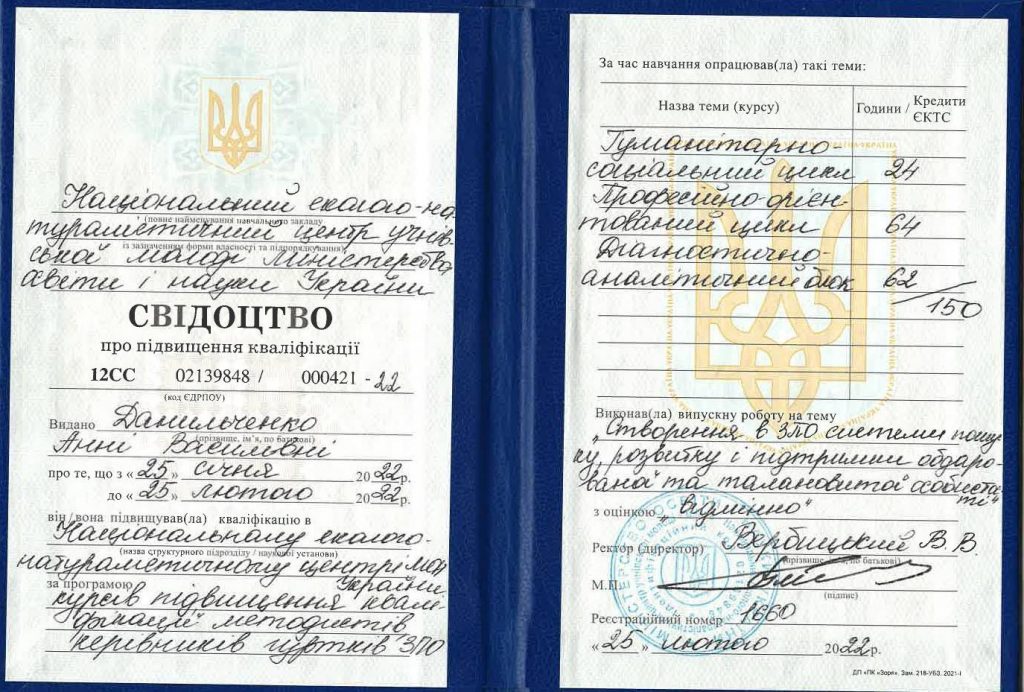 Національний еколого-на-
(повне найменування навчального закладу
туралістичний центр учнів-
із зазначенням форми власності та підпорядкування)
ської молоді Міністерства
освіти і науки України
СВІДОЦТВО
про підвищення кваліфікації
12СС 02139848 / 000421 - 22
(код ЄДРПОУ)
Видано Данильченко
(прізвище, ім'я, по батькові)
Анні Василівні
про те, що з «25» січня 2022р.
до «25» лютого 2022р.
він / вона підвищував(ла) кваліфікацію в
Національному еколого-
(назва структурного підрозділу / наукової установи)
натуралістичному центрі МОН
України
за програмою
курсів підвищення квалі-
фікації методистів
керівників гуртків ЗПО
За час навчання опрацював(ла) такі теми:
Назва теми (курсу) Години / Кредити ЄКТС
Гуманітарно-
соціальний цикл 24
Професійно-орієн-
тований цикл 64
Діагностично-
аналітичний блок 62
150
Виконав(ла) випускну роботу на тему
„Створення в ЗПО системи пошу-
ку, розвитку і підтримки обдаро-
ваної та талановитої особистос-
ті"
з оцінкою „відмінно"
Ректор (директор) Вербицький В. В.
(прізвище, ім'я, по батькові)
М.П.
(підпис)
Реєстраційний номер 1660
«25» лютого 2022р.
ДП «ПК «Зоря». Зам. 218-УБЗ. 2021-І